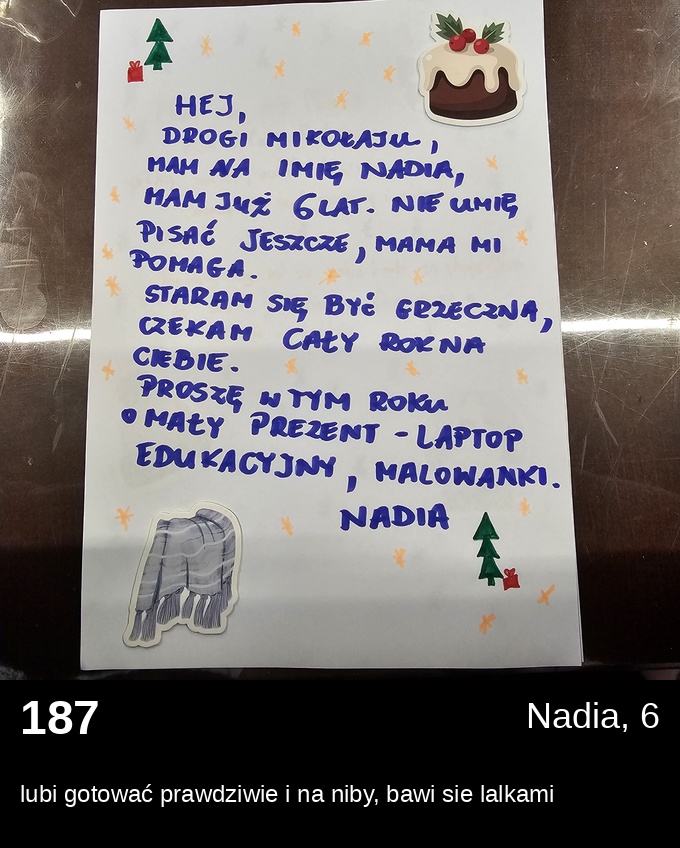 HEJ,
DROGI MIKOŁAJU,
MAM NA IMIĘ NADIA,
MAM JUŻ 6 LAT. NIE UMIĘ
PISAĆ JESZCZE, MAMA MI
POMAGA.
STARAM SIĘ BYĆ GRZECZNA,
CZEKAM CAŁY ROK NA
CIEBIE.
PROSZĘ W TYM ROKU
O MAŁY PREZENT - LAPTOP
EDUKACYJNY, MALOWANKI.
NADIA
187
Nadia, 6
lubi gotować prawdziwie i na niby, bawi sie lalkami